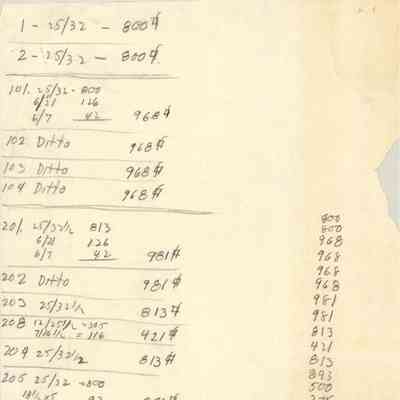 1 - 25/32 - 800#
2 - 25/32 - 800#
101. 25/32 - 800
6/21 126
6/7 42 968#
102 Ditto 968#
103 Ditto 968#
104 Ditto 968#
201. 25/32½ 813
6/21 126
6/7 42 981#
202 Ditto 981#
203 25/32½ 813#
208 12/25½ = 305
7/16½ = 116 421#
204 25/32½ 813#
205 25/32 = 800
800
800
968
968
968
968
981
981
813
421
813
893
500